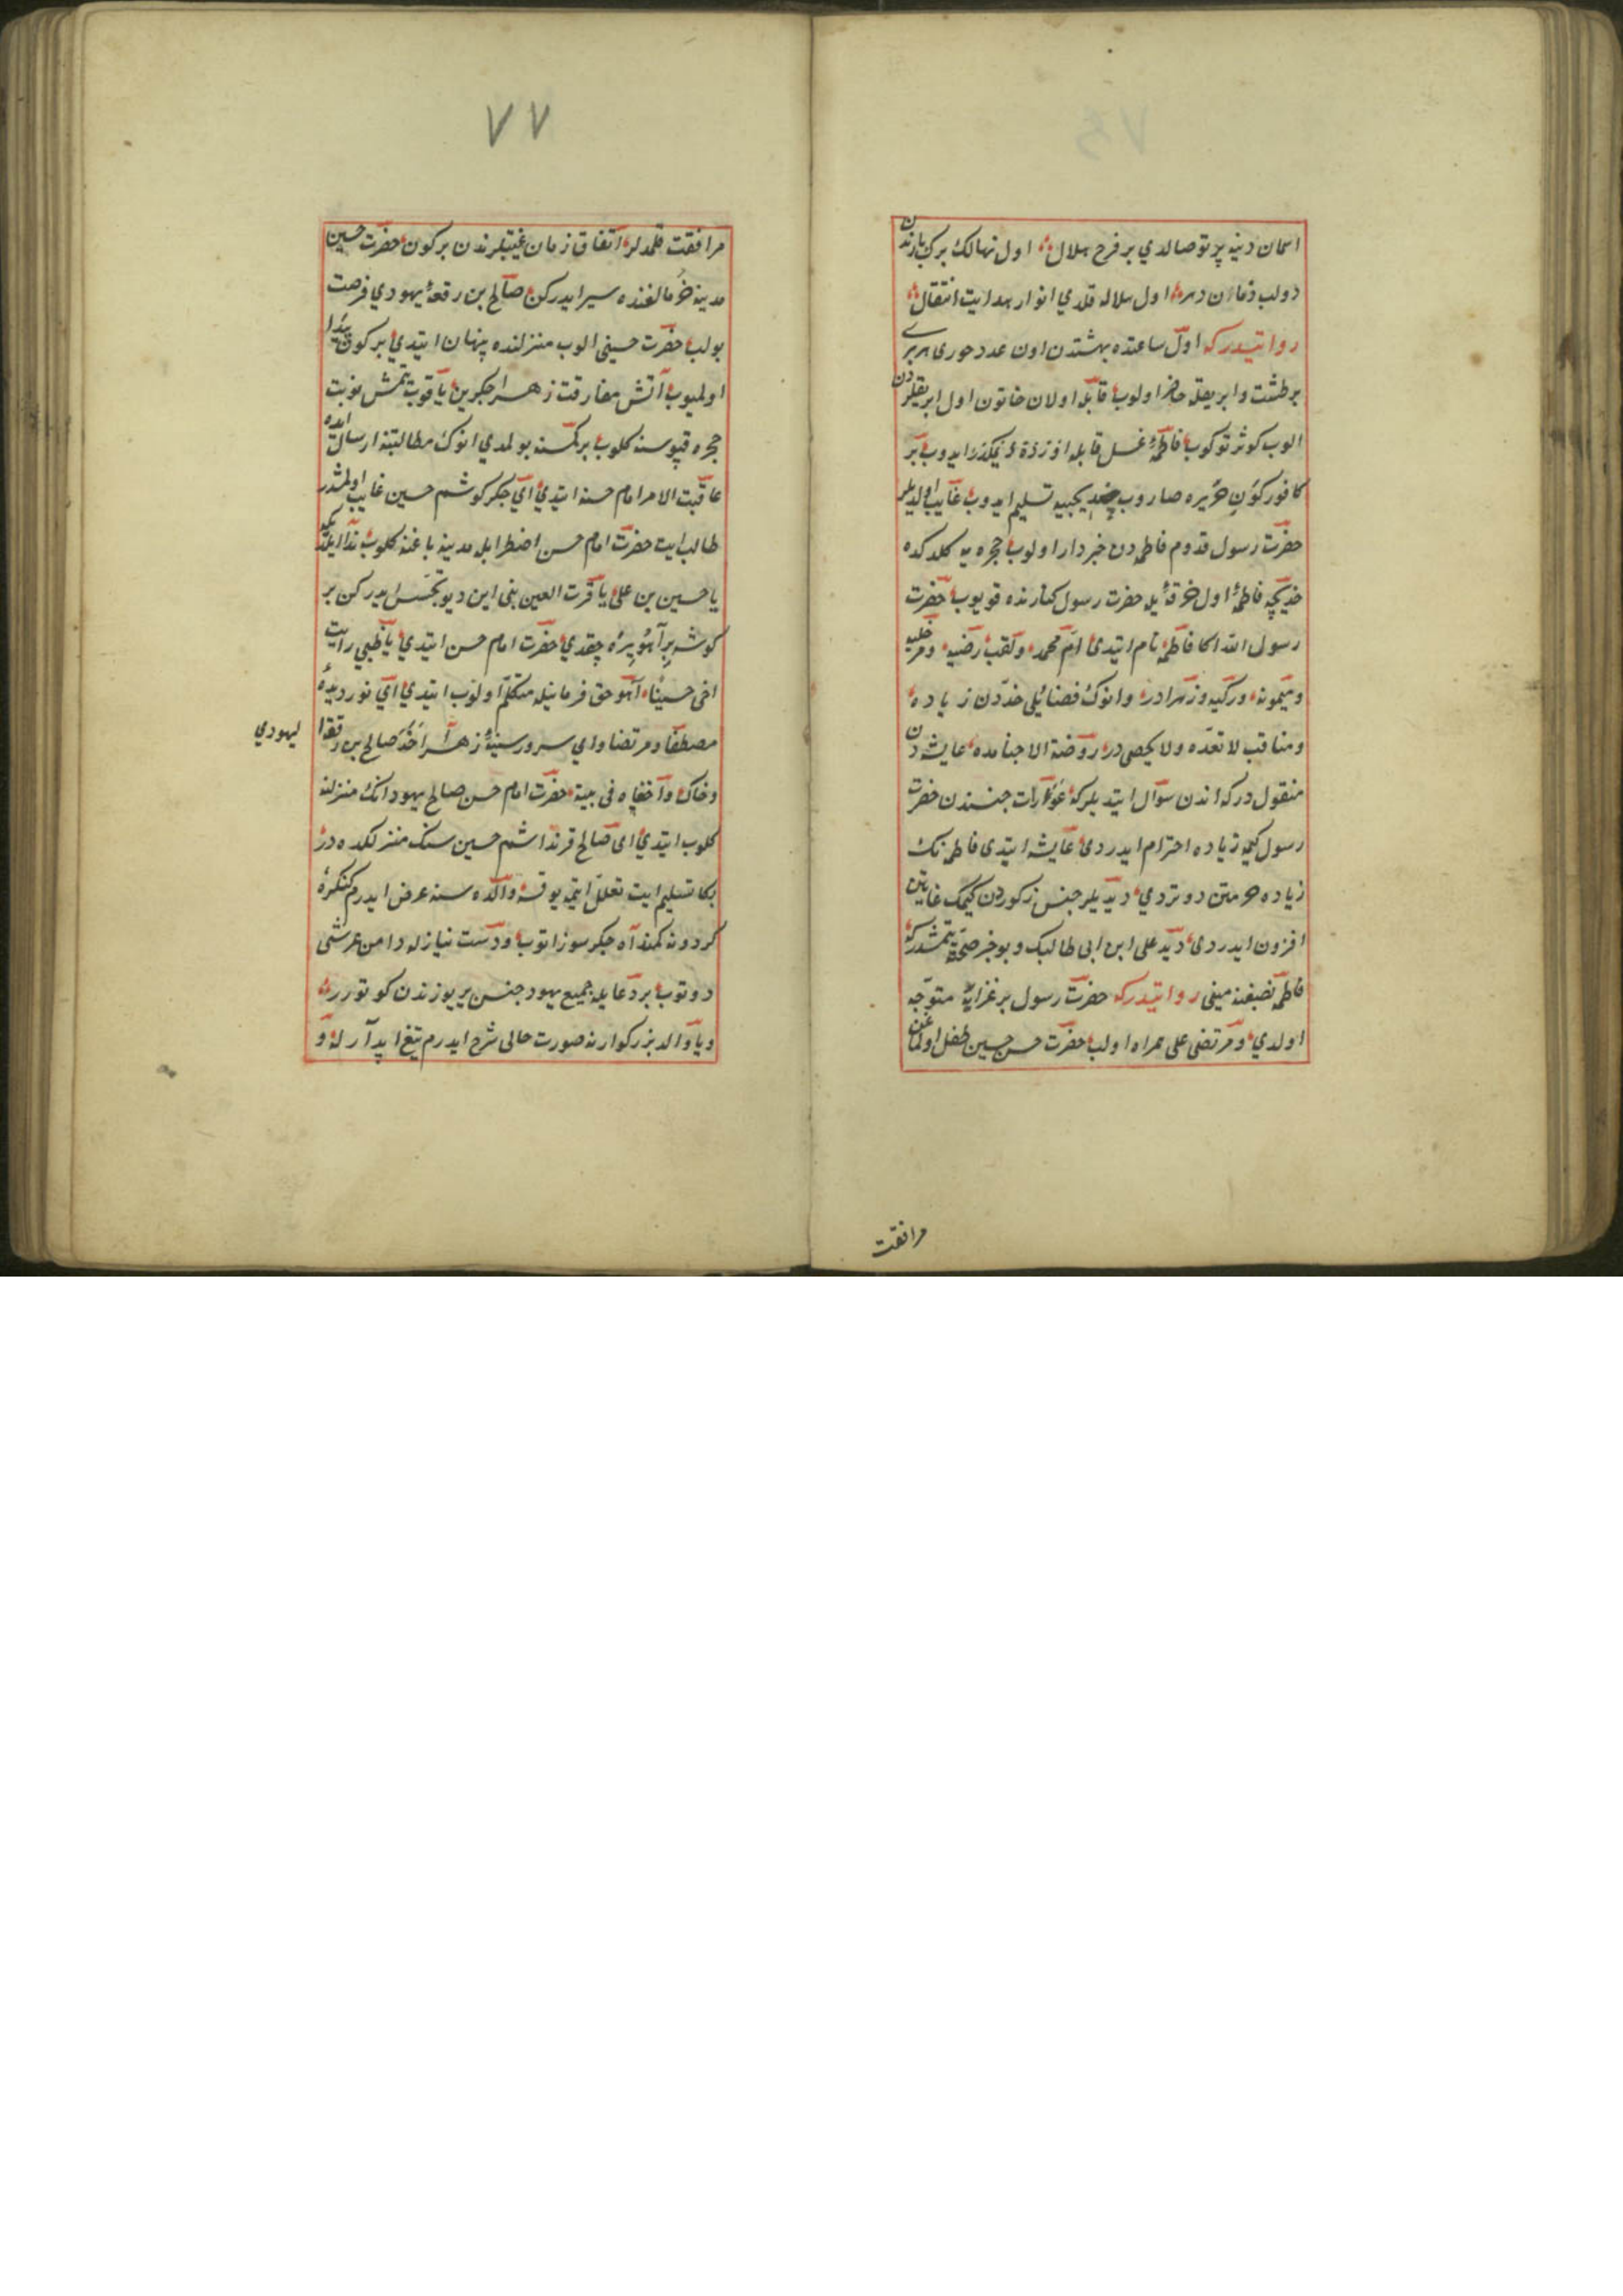 اسمان دینه پرتو صالدي بر فرخ هلال اول نهالك برك بارندن
دولب زمان دهره اول سلاله قلدي انوار هدايت انتقال
روايتدركه اول ساعتده بهشتدن اون عدد حوری هر بری
بر طشت و ابریقله حاضر اولوب قابله اولان خاتون اول ابریقلردن
الوب كوثر توكوب فاطمهٔ غسل قابله
كافور كون حريره صاروب خديجه يه تسليم ايدوب غايب اولديلر
حضرت رسول قدوم فاطمه دن خبردار اولوب حجره يه كلدكده
خديجه فاطمهٔ اول خرقه يله حضرت رسول كنارنده قويوب حضرت
رسول الله اكا فاطمه نام ايتدی ام محمد ولقب رضيه ومرضيه
وميمونه وزكيه وزهرادر وانوك فضائلی حددن زياده
ومناقب لا تعد ولا يحصی در روضة الاحبابده عايشه دن
منقول دركه اندن سوآل ايتديلركه عورات جنسندن حضرت
رسول كيمه زياده احترام ايدردی عايشه ايتدی فاطمه نك
زياده حرمتن دوتردي ديديلر جنس ذكوردن كيمك غايتين
افزون ايدردی ديد علی ابن ابی طالبك وبو خبر صحته يتمشدركه
فاطمه بضعة منی روايتدركه حضرت رسول بر غزايه متوجه
اولدي ومرتضی علی همراه اولب حضرت حسن حسين طفل اولماغن
مرافقت
٧٧
مرافقت قلمدلر اتفاق زمان غيبتلرندن بر كون حضرت حسين
مدينه خرمالغنده سير ايدركن صالح بن رقعهٔ يهودي فرصت
بولب حضرت حسينی الوب منزلنده پنهان ايتدي بر كون پيدا
اولميوب آتش مفارقت زهرا جكرين ياقوب يتمش نوبت
حجره قپوسنه كلوب بر كمسنه بولمدي انوك مطالبتنه ارسال ايده
عاقبت الامر امام حسنه ايتدي اي جكر كوشم حسين غايب اولمشدر
طالب ايت حضرت امام حسن اضطرابله مدينه باغنه كلوب ندا ايلدكه
يا حسين بن علی يا قرت العين بنی اين ديو تجسس ايدركن بر
كوشه بر آهو بره چقدي حضرت امام حسن ايتدي يا ظبی رايت
اخی حسينا آهو حق فرمانيله متكلم اولوب ايتدي اي نور ديدهٔ
مصطفا ومرتضا واي سرور سينهٔ زهرا اخذ صالح بن رقعا
ليهودي
وخاك واخفاه فی بيته حضرت امام حسن صالح يهودانك منزلنه
كلوب ايتدي ای صالح قرنداشم حسين سنك منزلكده در
بكا تسليم ايت تعلل ايتمه يوقسه والده سنه عرض ايدرم كنكرهٔ
كردونه كمند آه جكر سوز اتوب ودست نياز له دامن عرشی
دوتوب بر دعايله جميع يهود جنسن ير يوزندن كوتورر
ويا والد بزركوارنه صورت حالی شرح ايدرم تيغ آبدارله و